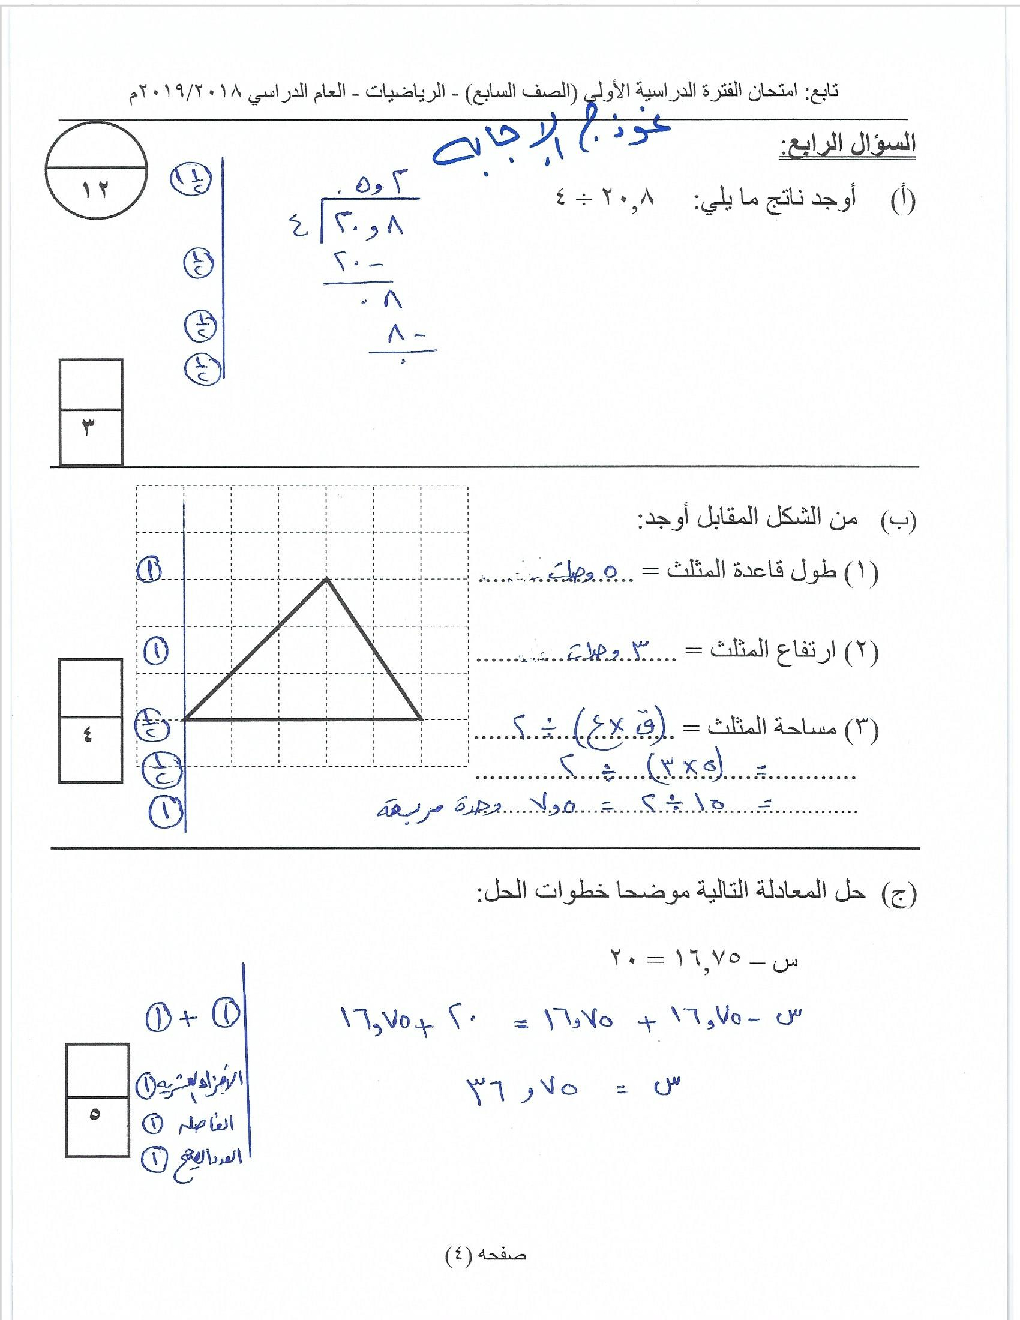 تابع: امتحان الفترة الدراسية الأولى (الصف السابع) - الرياضيات - العام الدراسي ٢٠١٩/٢٠١٨م
نموذج الإجابة
السؤال الرابع:
١٢
(أ) أوجد ناتج ما يلي: ٢٠,٨ ÷ ٤
٠٥,٢
٤ ٢٠,٨
٢٠ -
٠٨
٨ -
٠
١ ١/٢
١/٢
١/٢
١/٢
٣
(ب) من الشكل المقابل أوجد:
(١) طول قاعدة المثلث = ٥ وحدات
١
(٢) ارتفاع المثلث = ٣ وحدات
١
(٣) مساحة المثلث = (ق × ع) ÷ ٢
١/٢
= (٥ × ٣) ÷ ٢
١/٢
= ١٥ ÷ ٢ = ٧,٥ وحدة مربعة
١
٤
(ج) حل المعادلة التالية موضحا خطوات الحل:
س – ١٦,٧٥ = ٢٠
س - ١٦,٧٥ + ١٦,٧٥ = ٢٠ + ١٦,٧٥
١ + ١
س = ٣٦,٧٥
الأجزاء العشرية ١
الفاصلة ١
العدد الصحيح ١
٥
صفحه (٤)